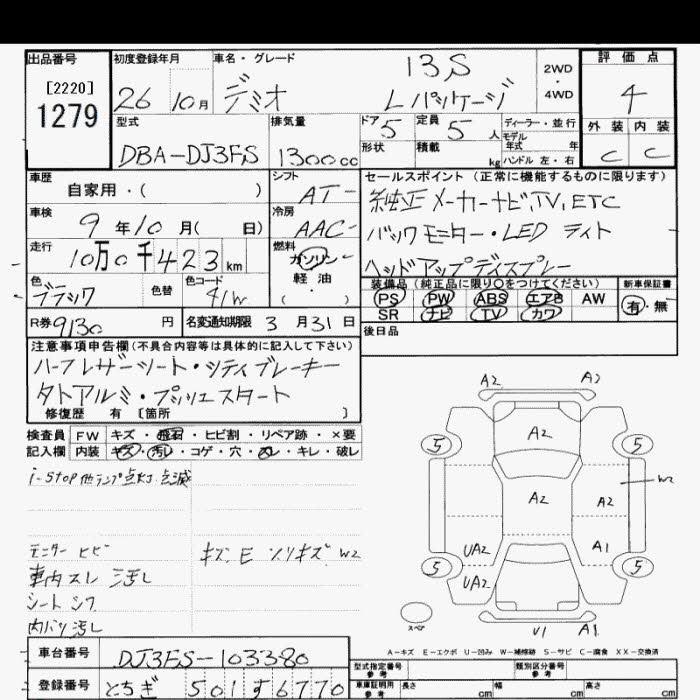 出品番号
[2220]
1279
初度登録年月
26 10月
車名・グレード
デミオ
13S
Lパッケージ
2WD
・
4WD
評価点
4
外装 内装
C C
型式
DBA-DJ3FS
排気量
1300cc
ドア 5
定員 5 人
形状
積載 kg
ディーラー・並行
モデル
年式 年
ハンドル 左・右
車歴
自家用・( )
シフト
AT-
車検
9年10月( 日)
冷房
AAC-
走行
10万0千423km
燃料
ガソリン
軽油
( ・ )
色
ブラック
色替
色コード
41W
R券 9130 円
名変通知期限 3月31日
セールスポイント (正常に機能するものに限ります)
純正メーカーナビ,TV,ETC
バックモニター・LEDライト
ヘッドアップディスプレー
装備品 (純正品に限り○をつけてください)
PS PW ABS エアB AW
SR ナビ TV カワ
新車保証書
有・無
後日品
注意事項申告欄(不具合内容等は具体的に記入して下さい)
ハーフレザーシート・シティブレーキー
タトアルミ・プッシュスタート
修復歴 有 [箇所 ]
検査員 FW キズ・飛石・ヒビ割・リペア跡・×要
記入欄 内装 キズ・汚レ・コゲ・穴・スレ・キレ・破レ
i-stop他ランプ点灯.点滅
モニター ヒビ
キズ.E ソリキズ W2
車内スレ 汚し
シート シワ
内バリ汚し
A2 A2
A2
5 5
W2
A2 A2
UA2 A1
5 5
UA2
スペア
V1 A1
A-キズ E-エクボ U-凹み W-補修跡 S-サビ C-腐食 XX-交換済
車台番号 DJ3FS-103380
登録番号 とちぎ 501す6770
型式指定番号
参考
類別区分番号
参考
車庫証明用
参考
長さ cm 幅 cm 高さ cm